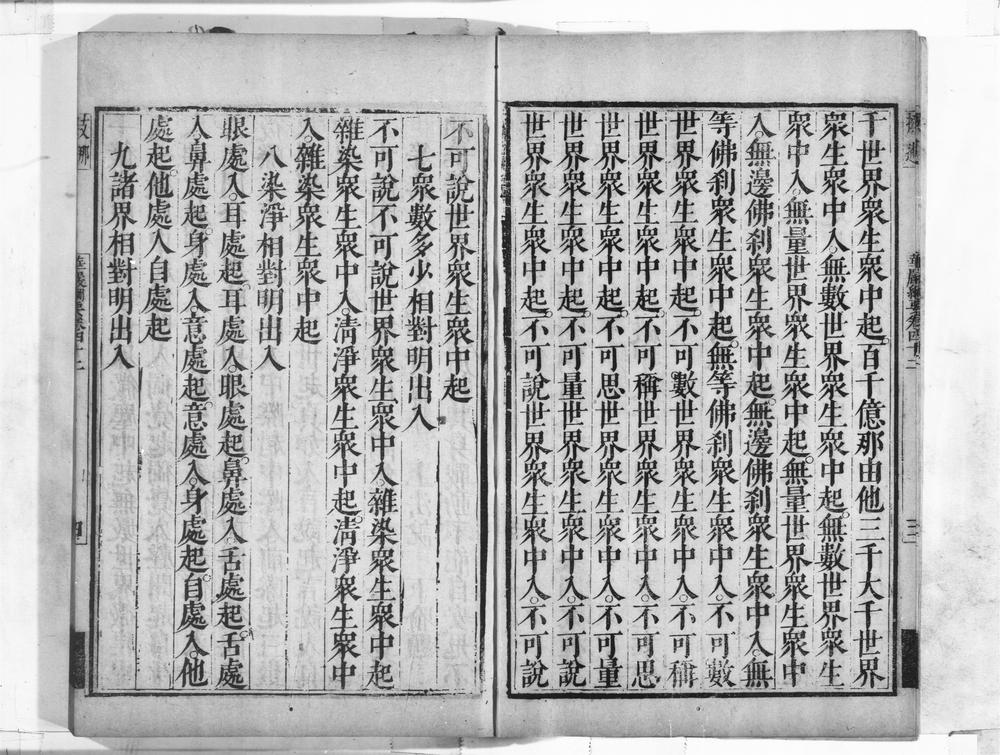 千世界衆生衆中起。百千億那由他三千大千世界
衆生衆中入。無數世界衆生衆中起。無數世界衆生
衆中入。無量世界衆生衆中起。無量世界衆生衆中
入。無邊佛刹衆生衆中起。無邊佛刹衆生衆中入。無
等佛刹衆生衆中起。無等佛刹衆生衆中入。不可數
世界衆生衆中起。不可數世界衆生衆中入。不可稱
世界衆生衆中起。不可稱世界衆生衆中入。不可思
世界衆生衆中起。不可思世界衆生衆中入。不可量
世界衆生衆中起。不可量世界衆生衆中入。不可說
世界衆生衆中起。不可說世界衆生衆中入。不可說
不可說世界衆生衆中起
七衆數多少相對明出入
不可說不可說世界衆生衆中入。雜染衆生衆中起
雜染衆生衆中入。清淨衆生衆中起。清淨衆生衆中
入。雜染衆生衆中起
八染淨相對明出入
眼處入。耳處起。耳處入。眼處起。鼻處入。舌處起。舌處
入。鼻處起。身處入。意處起。意處入。身處起。自處入。他
處起。他處入。自處起
九諸界相對明出入